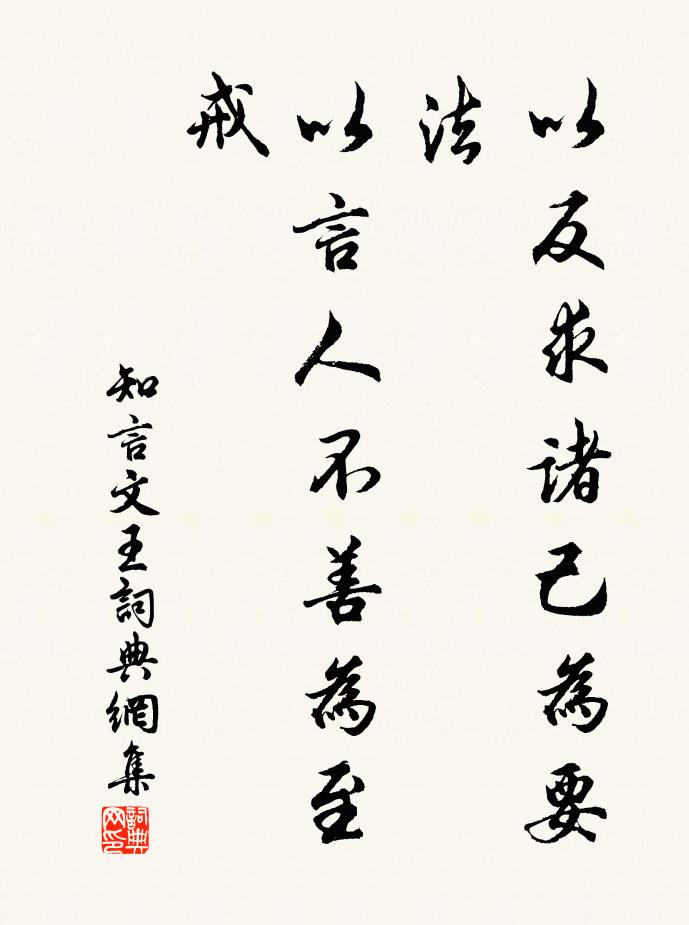 以反求諸己為要
法
以言人不善為至
戒
知言文王詞典網集
詞典
网印